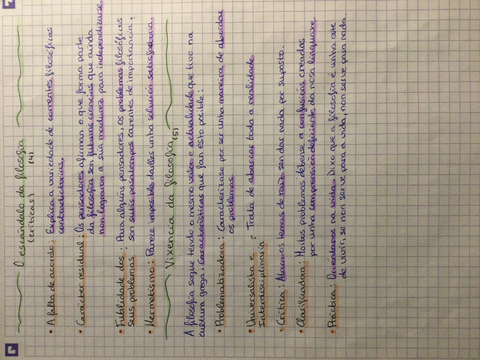 O escándalo da filosofía
(críticas) (4)
• A falta de acordo: Explica a variedade de correntes filosóficas
contraditorias.
• Carácter residual: Os pensadores afirman o que forma parte
da filosofía ser futuras ciencias que aínda
non lograron a súa madurez para independizarse.
• Futilidade dos : Para algúns pensadores, os problemas filosóficos
seus problemas son carentes de importancia.
• Hermetismo: Parece imposible darlle unha solución satisfactoria.
Vixencia da filosofía (5)
A filosofía segue tendo o mesmo valor e actualidade que tivo na
cultura grega. Características que fan esto posible:
• Problematizadora: Caracterízase por ser unha maneira de abordar
os problemas.
• Universalista e : Trata de abarcar toda a realidade
Interdisciplinaria
• Crítica: Algunhas formas de non dar nada por suposto.
• Clasificadora: Moitos problemas débense a confusións creadas
por unha comprensión deficiente da nosa linguaxe
• Práctica: na vida. Dixo que a filosofía é unha arte
de vivir, se non serve para a vida, non serve para nada.